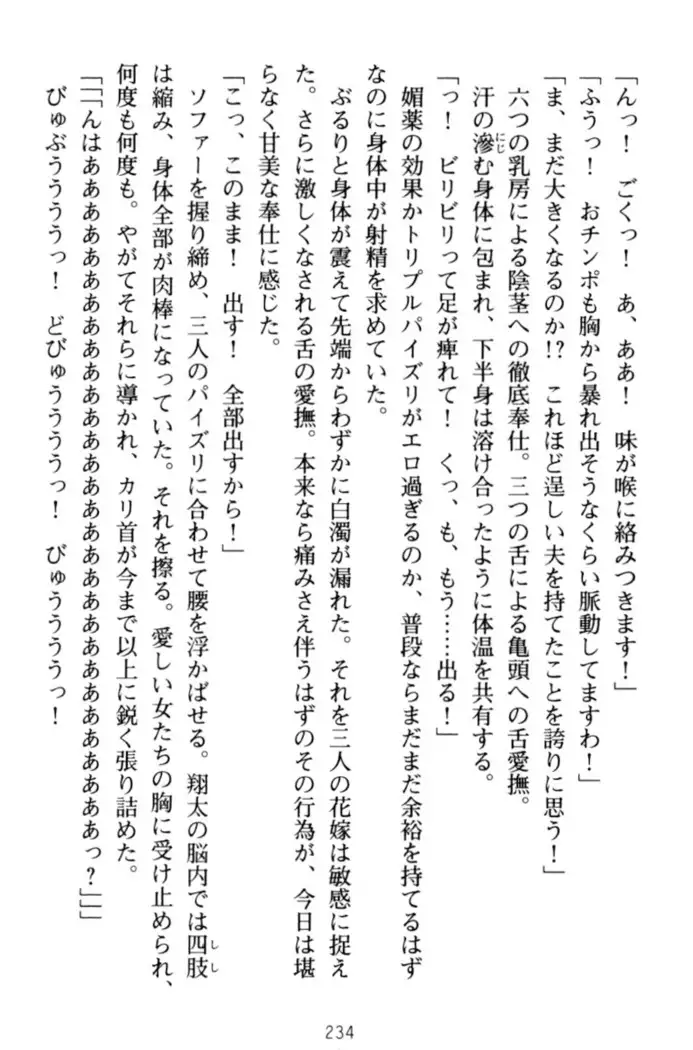 「んっ！　ごくっ！　あ、ああ！　味が喉に絡みつきます！」
「ふうっ！　おチンポも胸から暴れ出そうなくらい脈動してますわ！」
「ま、まだ大きくなるのか!?　これほど逞しい夫を持てたことを誇りに思う！」
六つの乳房による陰茎への徹底奉仕。三つの舌による亀頭への舌愛撫。
汗の滲む身体に包まれ、下半身は溶け合ったように体温を共有する。
にじ
「っ！　ビリビリって足が痺れて！　くっ、も、もう……出る！」
媚薬の効果かトリプルパイズリがエロ過ぎるのか、普段ならまだまだ余裕を持てるはず
なのに身体中が射精を求めていた。
ぶるりと身体が震えて先端からわずかに白濁が漏れた。それを三人の花嫁は敏感に捉え
た。さらに激しくなされる舌の愛撫。本来なら痛みさえ伴うはずのその行為が、今日は堪
らなく甘美な奉仕に感じた。
「こっ、このまま！　出す！　全部出すから！」
ソファーを握り締め、三人のパイズリに合わせて腰を浮かばせる。翔太の脳内では四肢
しし
は縮み、身体全部が肉棒になっていた。それを擦る。愛しい女たちの胸に受け止められ、
何度も何度も。やがてそれらに導かれ、カリ首が今まで以上に鋭く張り詰めた。
「「「んはあああああああああああああああああああああああああああああああっ？」」」
びゅぶうううううっ！　どびゅうううううっ！　びゅううううっ！
234